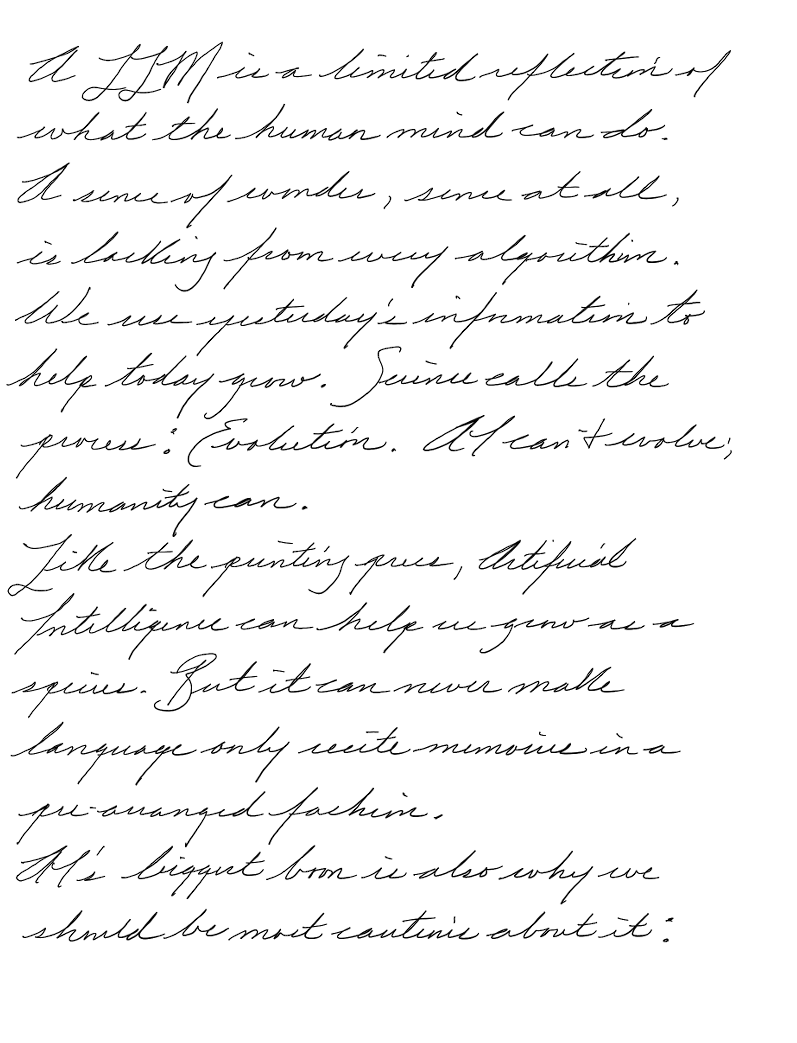 A LLM is a limited reflection of
what the human mind can do.
A sense of wonder, sense at all,
is lacking from every algorithim.
We use yesterday's information to
help today grow. Science calls the
process: Evolution. AI can't evolve;
humanity can.
Like the printing press, Artificial
Intelligence can help us grow as a
species. But it can never make
language only recite memories in a
pre-arranged fashion.
AI's biggest boon is also why we
should be most cautious about it: